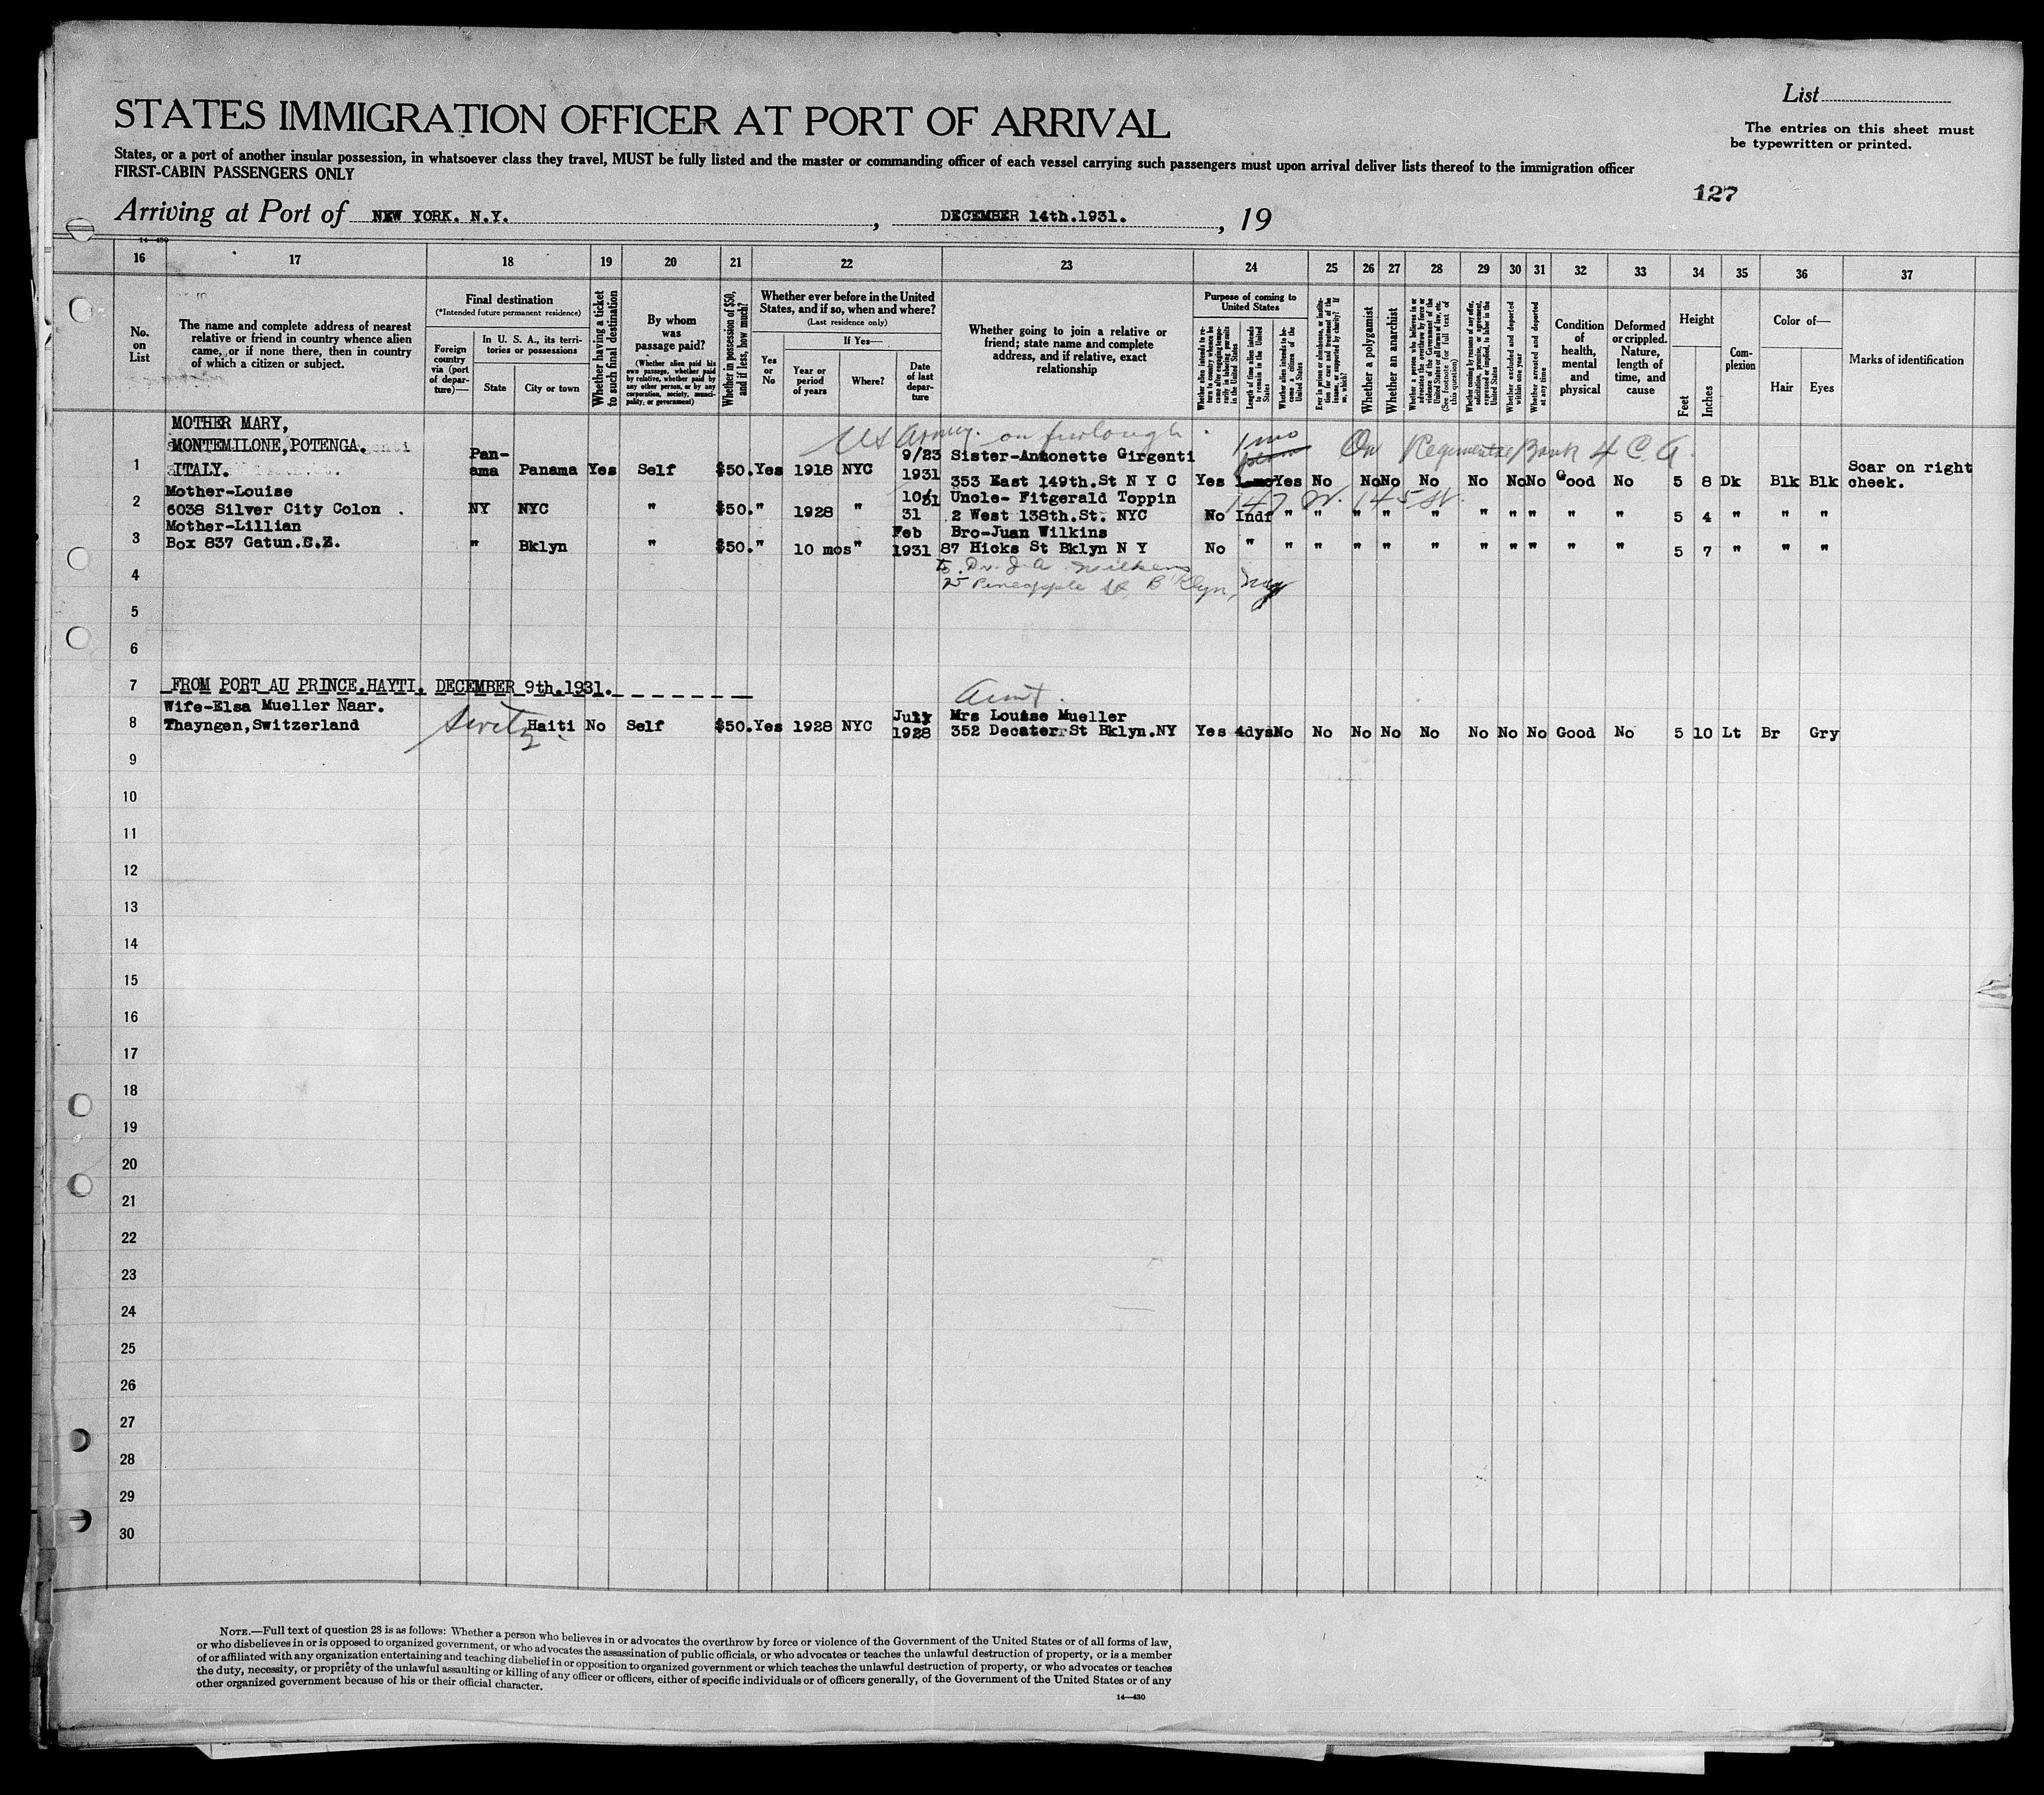 List
STATES IMMIGRATION OFFICER AT PORT OF ARRIVAL
The entries on this sheet must
be typewritten or printed.
States, or a port of another insular possession, in whatsoever class they travel, MUST be fully listed and the master or commanding officer of each vessel carrying such passengers must upon arrival deliver lists thereof to the immigration officer
FIRST-CABIN PASSENGERS ONLY
127
Arriving at Port of NEW YORK. N.Y. , DECEMBER 14th.1931. , 19
14—430
16 17 18 19 20 21 22 23 24 25 26 27 28 29 30 31 32 33 34 35 36 37
No. on List
The name and complete address of nearest relative or friend in country whence alien came, or if none there, then in country of which a citizen or subject.
Final destination
(*Intended future permanent residence)
Foreign country via (port of departure)—
In U. S. A., its territories or possessions
State
City or town
Whether having a ticket to such final destination
By whom was passage paid?
(Whether alien paid his own passage, whether paid by relative, whether paid by any other person, or by any corporation, society, municipality, or government)
Whether in possession of $50, and if less, how much?
Whether ever before in the United States, and if so, when and where?
(Last residence only)
Yes or No
If Yes—
Year or period of years
Where?
Date of last departure
Whether going to join a relative or friend; state name and complete address, and if relative, exact relationship
Purpose of coming to United States
Whether alien intends to return to country whence he came after engaging temporarily in laboring pursuits in the United States
Length of time alien intends to remain in the United States
Whether alien intends to become a citizen of the United States
Ever in prison or almshouse, or institution for care and treatment of the insane, or supported by charity? If so, which?
Whether a polygamist
Whether an anarchist
Whether a person who believes in or advocates the overthrow by force or violence of the Government of the United States or all forms of law, etc. (See footnote for full text of this question)
Whether coming by reasons of any offer, solicitation, promise, or agreement, expressed or implied, to labor in the United States
Whether excluded and deported within one year
Whether arrested and deported at any time
Condition of health, mental and physical
Deformed or crippled. Nature, length of time, and cause
Height
Feet
Inches
Complexion
Color of—
Hair
Eyes
Marks of identification
US Army. on furlough. 1 mo On 4 C.A.
MOTHER MARY,
MONTEMILONE,POTENGA.
1 ITALY. Pan-ama Panama Yes Self $50. Yes 1918 NYC 9/23 1931 Sister-Antonette Girgenti
353 East 149th.St N Y C Yes 1 mo Yes No No No No No No No Good No 5 8 Dk Blk Blk Scar on right cheek.
147 W. 145 St.
Mother-Louise
2 6038 Silver City Colon . NY NYC " $50. " 1928 " 10/1 31 Uncle- Fitgerald Toppin
2 West 138th.St. NYC No Indf " " " " " " " " " " 5 4 " " "
Mother-Lillian
3 Box 837 Gatun.C.Z. " Bklyn " $50. " 10 mos " Feb 1931 Bro-Juan Wilkins
87 Hicks St Bklyn N Y No " " " " " " " " " " " 5 7 " " "
To Dr. J.A. Wilkens
25 Pineapple St, B'klyn, NY
4
5
6
7 FROM PORT AU PRINCE.HAYTI. DECEMBER 9th.1931.
Aunt.
Wife-Elsa Mueller Naar.
8 Thayngen,Switzerland Switz. Haiti No Self $50. Yes 1928 NYC July 1928 Mrs Louise Mueller
352 Decater St Bklyn.NY Yes 4dys No No No No No No No No Good No 5 10 Lt Br Gry
9
10
11
12
13
14
15
16
17
18
19
20
21
22
23
24
25
26
27
28
29
30
NOTE.—Full text of question 28 is as follows: Whether a person who believes in or advocates the overthrow by force or violence of the Government of the United States or of all forms of law,
or who disbelieves in or is opposed to organized government, or who advocates the assassination of public officials, or who advocates or teaches the unlawful destruction of property, or is a member
of or affiliated with any organization entertaining and teaching disbelief in or opposition to organized government or which teaches the unlawful destruction of property, or who advocates or teaches
the duty, necessity, or propriety of the unlawful assaulting or killing of any officer or officers, either of specific individuals or of officers generally, of the Government of the United States or of any
other organized government because of his or their official character.
14—430